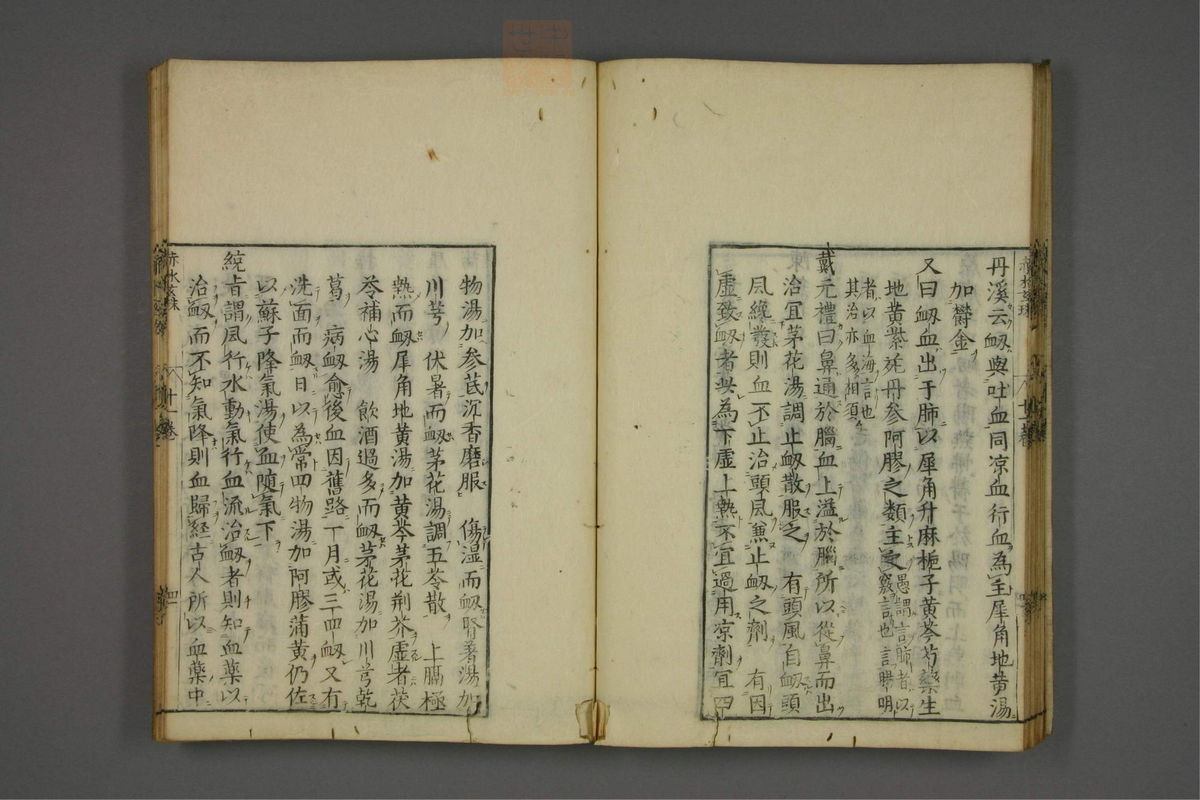 丹溪云衂與吐血同凉血行血為主犀角地黄湯
加欝金
又曰衂血出于肺以犀角升麻梔子黄芩芍藥生
地黄紫菀丹參阿膠之類主之愚謂言肺者以竅言也言
者以血海言也其治亦多相須
戴元禮曰鼻通於腦血上溢於腦所以從鼻而出
治宜茅花湯調止衂散服之　有頭風自衂頭
風纔發則血不止治頭風兼止衂之劑　有因
虛致衂者此為下虛上熱不宜過用凉劑宜四
物湯加参芪沉香磨服　傷湿而衂腎著湯加
川芎　伏暑而衂茅花湯調五苓散　上膈極
熱而衂犀角地黄湯加黄芩茅花荆芥虛者茯
苓補心湯　飲酒過多而衂茅花湯加川芎乾
葛　病衂愈後血因舊路一月或三四衂又有
洗面而衂日以為常四物湯加阿膠蒲黄仍佐
以蘇子降氣湯使血随氣下
統㫖謂風行水動氣行血流治衂者則知血藥以
治衂而不知氣降則血歸経古人所以血藥中
赤水玄珠
十一卷
四